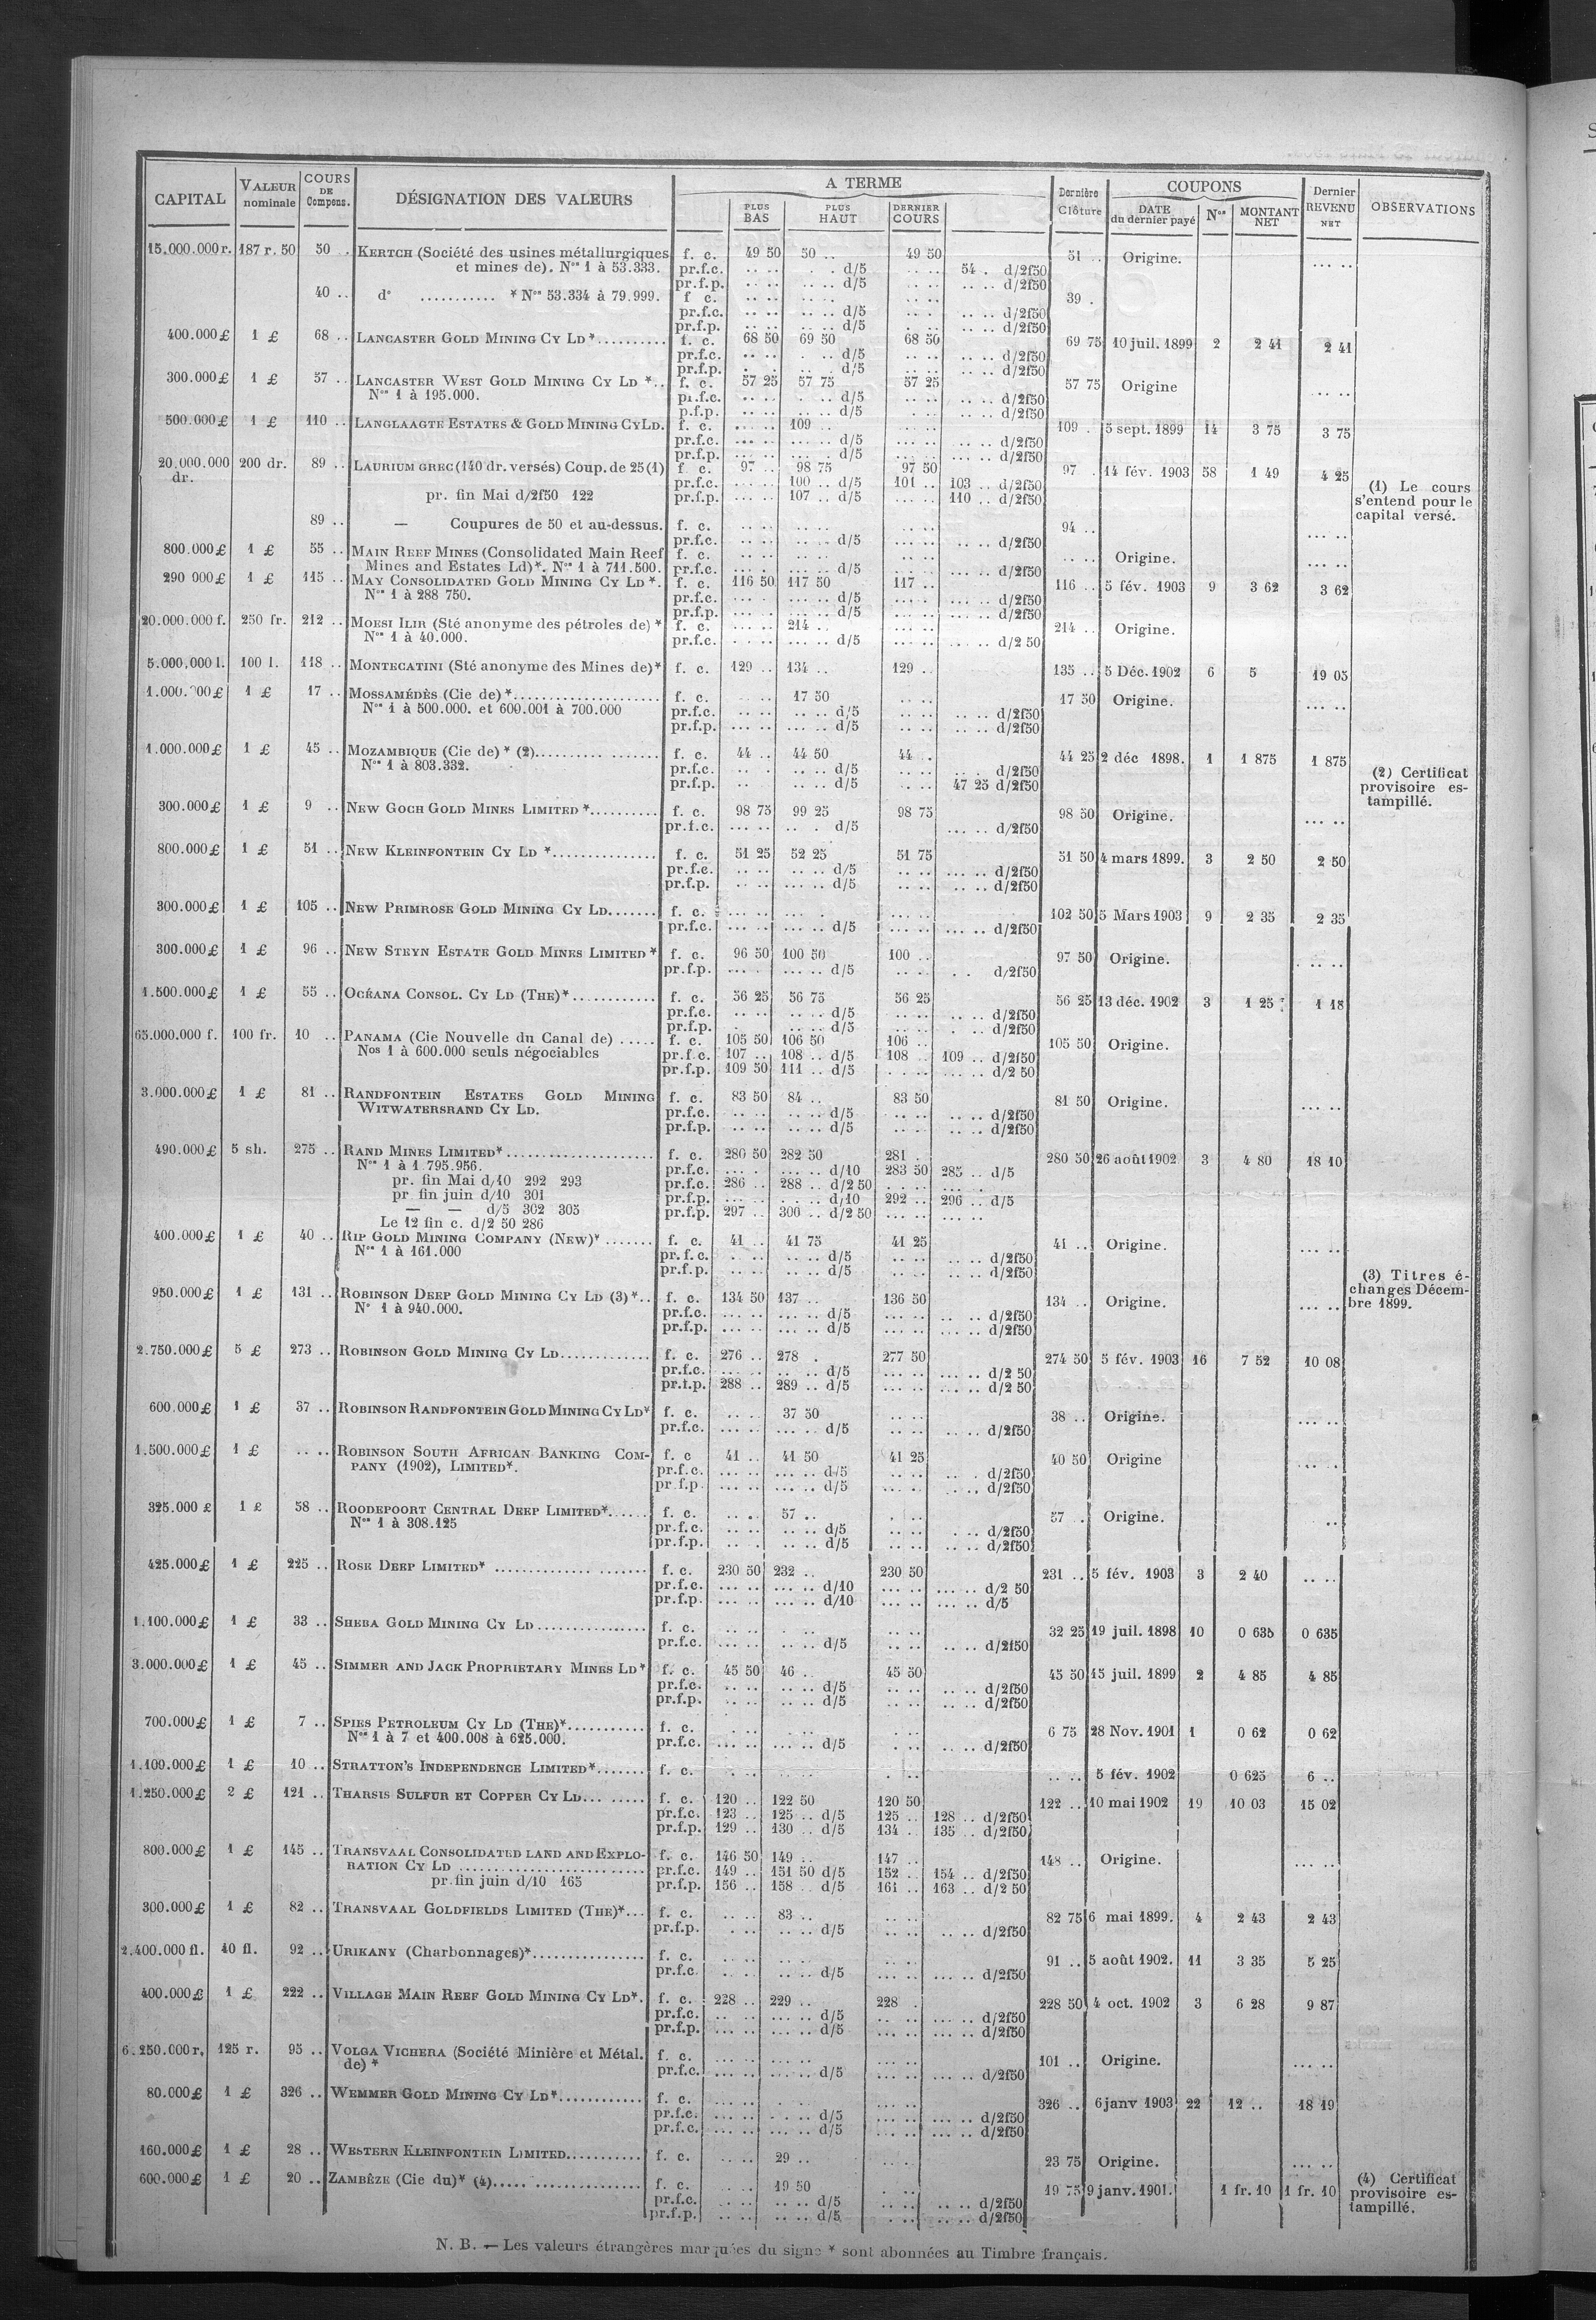 CAPITAL VALEUR nominale COURS DE Compens. DÉSIGNATION DES VALEURS A TERME Dernière Clôture COUPONS Dernier REVENU NET OBSERVATIONS
PLUS BAS PLUS HAUT DERNIER COURS DATE du dernier payé Nos MONTANT NET
15.000.000 r. 187 r. 50 50 . KERTCH (Société des usines métallurgiques f. c. 49 50 50 .. 49 50 51 .. Origine. ... ..
et mines de). Nos 1 à 53.333. pr.f.c. .. .. . . d/5 .. .. 54 . d/2f50
pr.f.p. .. .. .. .. d/5 .. .. .. .. d/2f50
40 .. do ........... * Nos 53.334 à 79.999. f c. .. .. .. .. .. .. 39 .
pr.f.c. .. .. .. .. d/5 .. . .. .. d/2f50
pr.f.p. .. .. .. .. d/5 . .. .. .. d/2f50
400.000 £ 1 £ 68 .. LANCASTER GOLD MINING CY LD *.......... f. c. 68 50 69 50 68 50 69 75 10 juil. 1899 2 2 41 2 41
pr.f.c. .. .. . .. d/5 .. .. .. .. d/2f50
pr.f.p. . .. .. .. d/5 .. .. .. .. d/2f50
300.000 £ 1 £ 57 .. LANCASTER WEST GOLD MINING CY LD *.. f. c. 57 25 57 75 57 25 57 75 Origine ... ..
Nos 1 à 195.000. pr.f.c. .. .. . .. d/5 .. .. .. .. d/2f50
p.f.p. .. .. .. .. d/5 .. .. .. .. d/2f50
500.000 £ 1 £ 110 .. LANGLAAGTE ESTATES & GOLD MINING CY LD. f. c. ... .. 109 .. ... .. 109 . 5 sept. 1899 14 3 75 3 75
pr.f.c. ... .. ... .. d/5 ... .. .. .. d/2f50
pr.f.p. ... .. ... . d/5 ... .. ... .. d/2f50
20.000.000 dr. 200 dr. 89 .. LAURIUM GREC (140 dr. versés) Coup. de 25 (1) f. c. 97 .. 98 75 97 50 97 . 14 fév. 1903 58 1 49 4 25
pr.f.c. ... .. 100 .. d/5 101 .. 103 .. d/2f50 (1) Le cours
pr. fin Mai d/2f50 122 pr.f.p. ... .. 107 .. d/5 ... .. 110 .. d/2f50 s'entend pour le
capital versé.
89 .. — Coupures de 50 et au-dessus. f. c. .. .. .. .. .. .. 94 .. ... ..
pr.f.c. .. .. .. .. d/5 .. .. ... .. d/2f50
800.000 £ 1 £ 55 .. MAIN REEF MINES (Consolidated Main Reef f. c. .. .. .. .. .. .. .. .. Origine. ... ..
Mines and Estates Ld)*. Nos 1 à 711.500. pr.f.c. ... . ... .. d/5 .. .. ... .. d/2f50
290 000 £ 1 £ 115 .. MAY CONSOLIDATED GOLD MINING CY LD *. f. c. 116 50 117 50 117 .. 116 .. 5 fév. 1903 9 3 62 3 62
Nos 1 à 288 750. pr.f.c. ... . ... .. d/5 ... .. ... .. d/2f50
pr.f.p. ... . ... .. d/5 ... .. ... .. d/2f50
20.000.000 f. 250 fr. 212 .. MOESI ILIR (Sté anonyme des pétroles de) * f. c. ... .. 214 .. ... .. 214 .. Origine.
Nos 1 à 40.000. pr.f.c. ... .. ... .. d/5 ... .. ... .. d/2 50
5.000.000 l. 100 l. 118 .. MONTECATINI (Sté anonyme des Mines de)* f. c. 129 .. 134 .. 129 .. 135 .. 5 Déc. 1902 6 5 19 05
1.000. 00 £ 1 £ 17 .. MOSSAMÉDÈS (Cie de) *..................... f. c. .. .. 17 50 .. .. 17 50 Origine. ... ..
Nos 1 à 500.000. et 600.001 à 700.000 pr.f.c. .. .. .. .. d/5 .. .. .. .. d/2f50
pr.f.p. ... .. ... .. d/5 .. .. .. .. d/2f50
1.000.000 £ 1 £ 45 .. MOZAMBIQUE (Cie de) * (2).................. f. c. 44 .. 44 50 44 .. 44 25 2 déc 1898. 1 1 875 1 875
Nos 1 à 803.332. pr.f.c. .. . .. .. d/5 .. .. .. . d/2f50 (2) Certificat
pr.f.p. .. .. .. d/5 .. .. 47 25 d/2f50 provisoire es-
tampillé.
300.000 £ 1 £ 9 .. NEW GOCH GOLD MINES LIMITED *.......... f. c. 98 75 99 25 98 75 98 50 Origine. ... ..
pr.f.c. ... .. .. . d/5 ... .. d/2f50
800.000 £ 1 £ 51 .. NEW KLEINFONTEIN CY LD *............... f. c. 51 25 52 25 51 75 51 50 4 mars 1899. 3 2 50 2 50
pr.f.c. .. .. ... .. d/5 .. .. ... .. d/2f50
pr.f.p. .. .. ... .. d/5 .. .. .. .. d/2f50
300.000 £ 1 £ 105 .. NEW PRIMROSE GOLD MINING CY LD....... f. c. ... .. ... . ... .. 102 50 5 Mars 1903 9 2 35 2 35
pr.f.c. ... .. ... .. d/5 ... .. ... .. d/2f50
300.000 £ 1 £ 96 .. NEW STEYN ESTATE GOLD MINES LIMITED * f. c. 96 50 100 50 100 .. 97 50 Origine. . .. ..
pr.f.p. ... . ... .. d/5 .. .. . . d/2f50
1.500.000 £ 1 £ 55 .. OCÉANA CONSOL. CY LD (THE)*............ f. c. 56 25 56 75 56 25 56 25 13 déc. 1902 3 1 25 1 18
pr.f.c. .. .. .. .. d/5 .. .. .. .. d/2f50
pr.f.p. . .. .. d/5 .. .. . .. d/2f50
65.000.000 f. 100 fr. 10 .. PANAMA (Cie Nouvelle du Canal de) ..... f. c. 105 50 106 50 106 .. 105 50 Origine.
Nos 1 à 600.000 seuls négociables pr.f.c. 107 .. 108 .. d/5 108 .. 109 .. d/2f50
pr.f.p. 109 50 111 .. d/5 . .. .. ... .. d/2 50
3.000.000 £ 1 £ 81 .. RANDFONTEIN ESTATES GOLD MINING f. c. 83 50 84 .. 83 50 81 50 Origine. ... ..
WITWATERSRAND CY LD. pr.f.c. .. .. .. .. d/5 .. .. .. .. d/2f50
pr.f.p. .. .. .. .. d/5 .. .. .. .. d/2f50
490.000 £ 5 sh. 275 .. RAND MINES LIMITED*.................... f. c. 280 50 282 50 281 . 280 50 26 août 1902 3 4 80 18 10
Nos 1 à 1.795.956. pr.f.c. ... . ... .. d/10 283 50 285 .. d/5
pr. fin Mai d/10 292 293 pr.f.c. 286 .. 288 .. d/2 50 . .. .. ... .
pr fin juin d/10 301 pr.f.p. ... .. . .. d/10 292 .. 296 .. d/5
— — d/5 302 305 pr.f.p. 297 .. 300 .. d/2 50 ... .. ... ..
Le 12 fin c. d/2 50 286
400.000 £ 1 £ 40 .. RIP GOLD MINING COMPANY (NEW)* ....... f. c. 41 .. 41 75 41 25 41 .. Origine. ... ..
Nos 1 à 161.000 pr.f.c. .. .. .. .. d/5 .. .. .. .. d/2f50
pr.f.p. .. .. .. .. d/5 .. .. .. .. d/2f50
950.000 £ 1 £ 131 .. ROBINSON DEEP GOLD MINING CY LD (3)*.. f. c. 134 50 137 .. 136 50 134 .. Origine. ... .. (3) Titres é-
No 1 à 940.000. pr.f.c. ... .. ... .. d/5 ... .. .. .. d/2f50 changes Décem-
pr.f.p. ... .. ... .. d/5 ... .. ... .. d/2f50 bre 1899.
2.750.000 £ 5 £ 273 .. ROBINSON GOLD MINING CY LD............. f. c. 276 .. 278 . 277 50 274 50 5 fév. 1903 16 7 52 10 08
pr.f.c. ... .. ... .. d/5 ... .. ... .. d/2 50
pr.f.p. 288 .. 289 .. d/5 ... .. ... .. d/2 50
600.000 £ 1 £ 37 .. ROBINSON RANDFONTEIN GOLD MINING CY LD* f. c. .. .. 37 50 .. .. 38 .. Origine. ... ..
pr.f.c. ... .. ... .. d/5 .. .. d/2f50
1.500.000 £ 1 £ .. .. ROBINSON SOUTH AFRICAN BANKING COM- f. c 41 .. 41 50 41 25 40 50 Origine ... ..
PANY (1902), LIMITED*. pr.f.c. ... .. ... .. d/5 .. .. .. . d/2f50
pr.f.p. ... .. ... .. d/5 .. .. .. .. d/2f50
325.000 £ 1 £ 58 .. ROODEPOORT CENTRAL DEEP LIMITED*...... f. c. .. .. 57 .. . .. 57 . Origine. ..
Nos 1 à 308.125 pr.f.c. .. .. .. .. d/5 .. .. . .. d/2f50
pr.f.p. .. . .. .. d/5 .. .. .. .. d/2f50
425.000 £ 1 £ 225 .. ROSE DEEP LIMITED* ..................... f. c. 230 50 232 .. 230 50 231 .. 5 fév. 1903 3 2 40 .. ..
pr.f.c. ... .. ... .. d/10 ... .. ... .. d/2 50
pr.f.p. ... .. ... .. d/10 ... .. ... .. d/5
1.100.000 £ 1 £ 33 .. SHEBA GOLD MINING CY LD................ f. c. .. .. .. .. .. 32 25 19 juil. 1898 10 0 635 0 635
pr.f.c. ... .. .. .. d/5 .. .. .. .. d/2f50
3.000.000 £ 1 £ 45 .. SIMMER AND JACK PROPRIETARY MINES LD* f. c. 45 50 46 .. 45 50 45 50 15 juil. 1899 2 4 85 4 85
pr.f.c. .. .. .. .. d/5 .. .. .. .. d/2f50
pr.f.p. .. .. .. .. d/5 .. .. .. .. d/2f50
700.000 £ 1 £ 7 .. SPIES PETROLEUM CY LD (THE)*........... f. c. . .. .. .. .. .. 6 75 28 Nov. 1901 1 0 62 0 62
Nos 1 à 7 et 400.008 à 625.000. pr.f.c. ... .. ... .. d/5 . .. .. .. d/2f50
1.100.000 £ 1 £ 10 .. STRATTON'S INDEPENDENCE LIMITED*....... f. c. . .. .. .. . .. .. .. 5 fév. 1902 0 625 6 ..
1.250.000 £ 2 £ 121 .. THARSIS SULFUR ET COPPER CY LD... ..... f. c. 120 .. 122 50 120 50 122 .. 10 mai 1902 19 10 03 15 02
pr.f.c. 123 .. 125 .. d/5 125 .. 128 .. d/2f50
pr.f.p. 129 .. 130 .. d/5 134 .. 135 .. d/2f50
800.000 £ 1 £ 145 .. TRANSVAAL CONSOLIDATED LAND AND EXPLO- f. c. 146 50 149 .. 147 .. 148 .. Origine. ... ..
RATION CY LD .......................... pr.f.c. 149 .. 151 50 d/5 152 .. 154 .. d/2f50
pr. fin juin d/10 165 pr.f.p. 156 .. 158 .. d/5 161 .. 163 .. d/2 50
300.000 £ 1 £ 82 .. TRANSVAAL GOLDFIELDS LIMITED (THE)*... f. c. .. .. 83 .. .. .. 82 75 6 mai 1899. 4 2 43 2 43
pr.f.p. . .. .. .. d/5 d/2f50
2.400.000 fl. 40 fl. 92 .. URIKANY (Charbonnages)*................ f. c. .. .. .. .. .. .. 91 .. 5 août 1902. 11 3 35 5 25
pr.f.c. .. . .. .. d/5 ... .. ... .. d/2f50
400.000 £ 1 £ 222 .. VILLAGE MAIN REEF GOLD MINING CY LD*. f. c. 228 .. 229 .. 228 . 228 50 4 oct. 1902 3 6 28 9 87
pr.f.c. .. .. ... .. d/5 .. .. ... .. d/2f50
pr.f.p. ... .. ... .. d/5 ... .. ... .. d/2f50
6.250.000 r. 125 r. 95 .. VOLGA VICHERA (Société Minière et Métal. f. c. ... .. ... .. ... .. 101 .. Origine. ... ..
de) * pr.f.c. ... .. ... .. d/5 ... .. d/2f50
80.000 £ 1 £ 326 .. WEMMER GOLD MINING CY LD*............. f. c. ... .. . .. ... .. 326 .. 6 janv 1903 22 12 .. 18 19
pr.f.c. ... .. . .. .. d/5 ... .. ... .. d/2f50
pr.f.c. ... .. ... .. d/5 ... .. ... .. d/2f50
160.000 £ 1 £ 28 .. WESTERN KLEINFONTEIN LIMITED........... f. c. .. .. 29 .. .. . 23 75 Origine. ... ..
600.000 £ 1 £ 20 .. ZAMBÈZE (Cie du)* (4)..... ................ f. c. .. 19 50 . .. 19 75 9 janv. 1901. 1 fr. 10 1 fr. 10 (4) Certificat
pr.f.c. .. .. .. .. d/5 .. .. .. .. d/2f50 provisoire es-
pr.f.p. .. .. .. .. d/5 . .. .. .. d/2f50 tampillé.
N. B. — Les valeurs étrangères marquées du signe * sont abonnées au Timbre français.